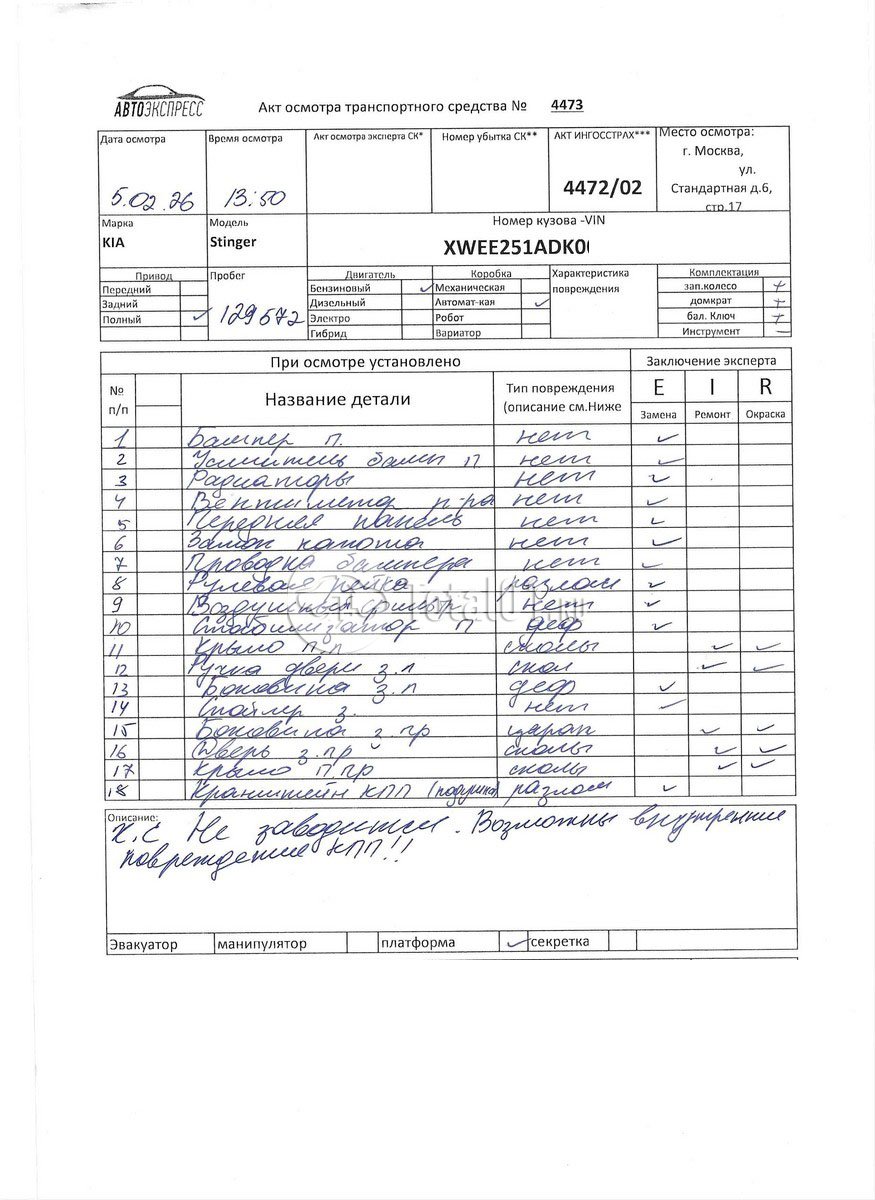 АВТОЭКСПРЕСС
Акт осмотра транспортного средства № 4473
Дата осмотра Время осмотра Акт осмотра эксперта СК* Номер убытка СК** АКТ ИНГОССТРАХ*** Место осмотра:
г. Москва,
ул.
5.02.26 13:50 4472/02 Стандартная д.6,
стр.17
Марка Модель Номер кузова -VIN
KIA Stinger XWEE251ADK0
Привод Пробег Двигатель Коробка Характеристика Комплектация
Передний Бензиновый ✓ Механическая повреждения зап.колесо +
Задний Дизельный Автомат-кая ✓ домкрат +
Полный ✓ 129572 Электро Робот бал. Ключ +
Гибрид Вариатор Инструмент –
При осмотре установлено Заключение эксперта
№ п/п Название детали Тип повреждения (описание см.Ниже E I R
Замена Ремонт Окраска
1 Бампер п. нет ✓
2 Усилитель бамп п нет ✓
3 Радиаторы нет ✓
4 Вентилятор р-ра нет ✓
5 Передняя панель нет ✓
6 Замок капота нет ✓
7 Проводка бампера нет ✓
8 Рулевая рейка разлом ✓
9 Воздушный фильтр нет ✓
10 Стабилизатор п деф ✓
11 Крыло п.л сколы ✓ ✓
12 Ручка двери з.л скол ✓ ✓
13 Боковина з.л деф ✓
14 Спойлер з. нет ✓
15 Боковина з.пр царап ✓ ✓
16 Дверь з.пр сколы ✓ ✓
17 Крыло п.пр сколы ✓ ✓
18 Кранштейн КПП (подушка) разлом ✓
Описание:
Х.С Не заводится. Возможны внутренние
повреждение КПП!!
Эвакуатор манипулятор платформа ✓ секретка
Total01.RU